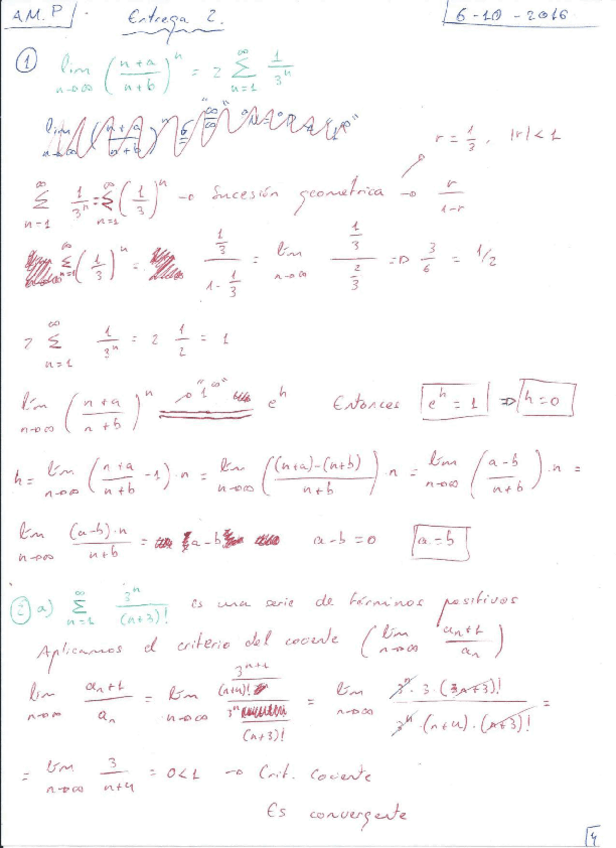 A.M.P Entrega 2. 6-10-2016
① lim n→∞ ((n+a)/(n+b))^n = 2 ∑_{n=1}^{∞} 1/3^n
r = 1/3, |r|<1
∑_{n=1}^{∞} 1/3^n = ∑_{n=1}^{∞} (1/3)^n → Sucesión geometrica → r/(1-r)
∑_{n=1}^{∞} (1/3)^n = (1/3)/(1-1/3) = lim n→∞ (1/3)/(2/3) ⇒ 3/6 = 1/2
2 ∑_{n=1}^{∞} 1/3^n = 2 1/2 = 1
lim n→∞ ((n+a)/(n+b))^n → "1^∞" e^h Entonces e^h = 1 ⇒ h=0
h = lim n→∞ ((n+a)/(n+b) -1)·n = lim n→∞ (((n+a)-(n+b))/(n+b))·n = lim n→∞ ((a-b)/(n+b))·n =
lim n→∞ ((a-b)·n)/(n+b) = a-b a-b=0 a=b
② a) ∑_{n=1}^{∞} 3^n/(n+3)! es una serie de términos positivos
Aplicamos el criterio del cociente (lim n→∞ a_{n+1}/a_n)
lim n→∞ a_{n+1}/a_n = lim n→∞ (3^{n+1}/(n+4)!)/(3^n/(n+3)!) = lim n→∞ (3^n·3·(n+3)!)/(3^n·(n+4)·(n+3)!) =
= lim n→∞ 3/(n+4) = 0<1 → Crit. Cociente
Es convergente